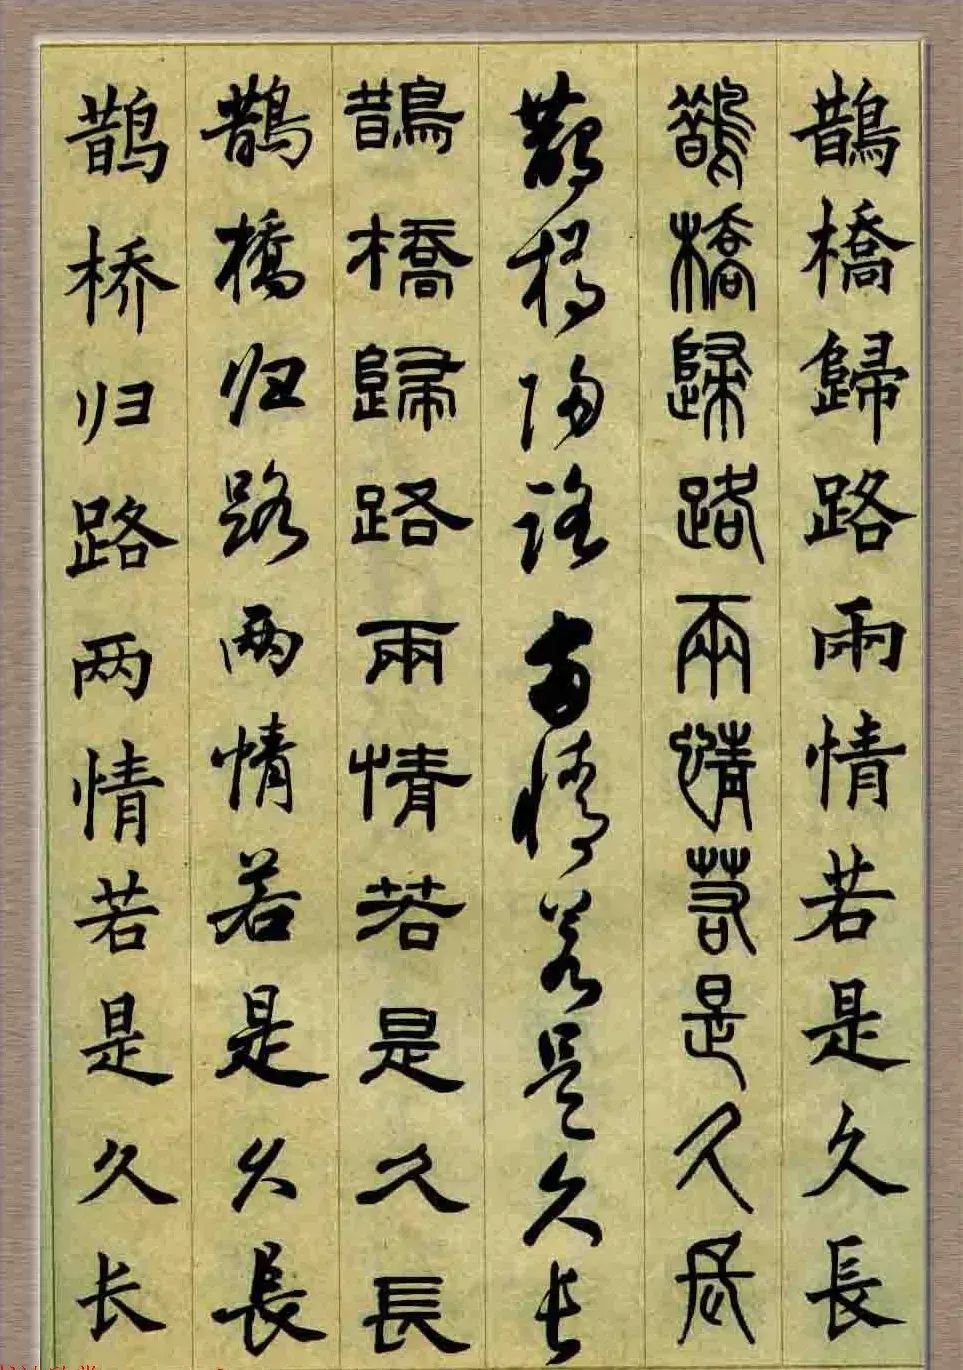 鵲橋歸路兩情若是久長
鵲橋歸路兩情若是久長
鵲橋歸路兩情若是久長
鵲橋歸路兩情若是久長
鵲橋归路两情若是久長
鹊桥归路两情若是久长